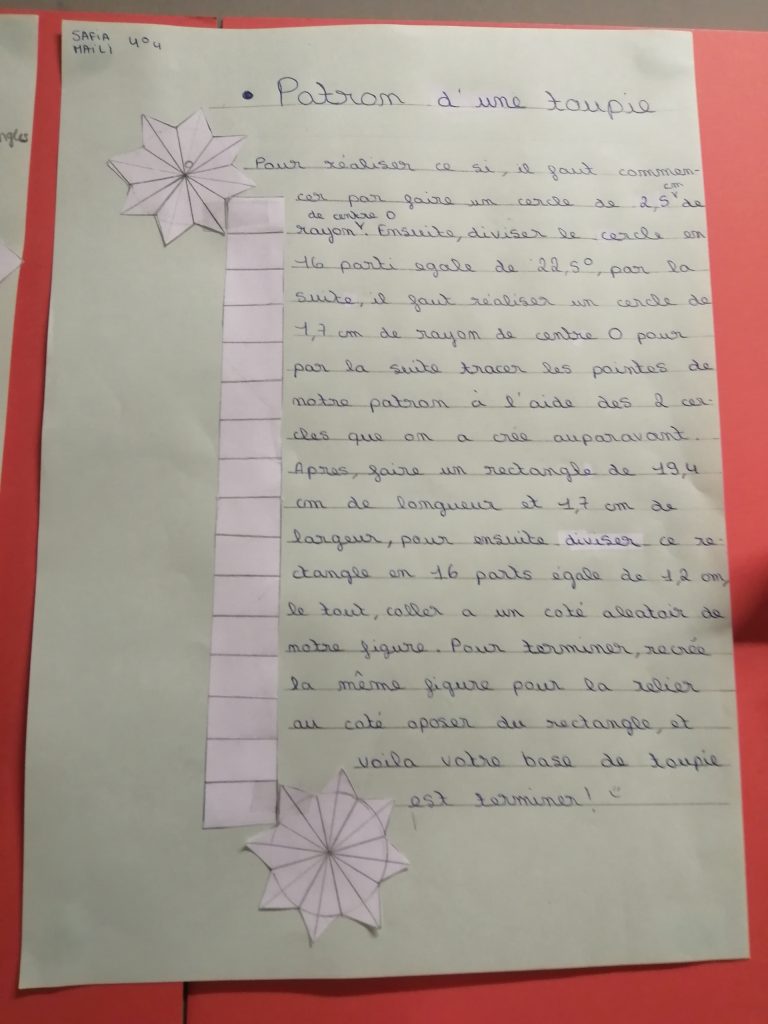 ngles
SAFIA 404
MAILI
• Patron d'une toupie
Pour réaliser ce si, il faut commen-
cer par faire un cercle de 2,5 cm de
rayon de centre O. Ensuite, diviser le cercle en
16 parti egale de 22,5°, par la
suite, il faut réaliser un cercle de
1,7 cm de rayon de centre O pour
par la suite tracer les pointes de
notre patron à l'aide des 2 cer-
cles que on a crée auparavant.
Apres, faire un rectangle de 19,4
cm de longueur et 1,7 cm de
largeur, pour ensuite diviser ce re-
ctangle en 16 parts égale de 1,2 cm,
le tout, coller a un coté aleatoir de
notre figure. Pour terminer, recrée
la même figure pour la relier
au coté oposer du rectangle, et
voila votre base de toupie
est terminer!